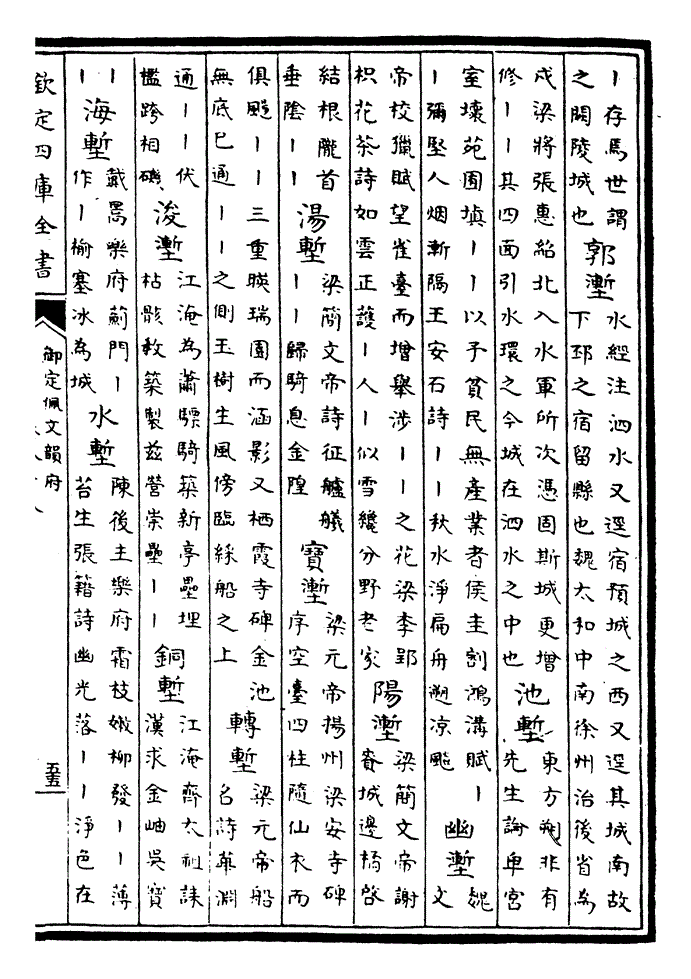 丨存焉世謂
之關陵城也
郭塹
水經注泗水又逕宿預城之西又逕其城南故
下邳之宿留縣也魏太和中南徐州治後省為
戍梁將張惠紹北入水軍所次憑固斯城更增
修丨丨其四面引水環之今城在泗水之中也
池塹
東方朔非有
先生論卑宮
室壞苑囿填丨丨以予貧民無產業者侯圭割鴻溝賦丨
丨彌堅人烟漸隔王安石詩丨丨秋水淨扁舟遡凉飈
幽塹
魏
文
帝校獵賦望雀臺而增舉涉丨丨之花梁李郢
枳花茶詩如雲正護丨人丨似雪纔分野老家
陽塹
梁簡文帝謝
賚城邊橘啓
結根隴首
垂陰丨丨
湯塹
梁簡文帝詩征艫艤
丨丨歸騎息金隍
寶塹
梁元帝揚州梁安寺碑
序空臺四柱隨仙衣而
俱颺丨丨三重暎瑞園而涵影又栖霞寺碑金池
無底已通丨丨之側玉樹生風傍臨綵船之上
轉塹
梁元帝船
名詩華淵
通丨丨伏
檻跨相磯
浚塹
江淹為蕭驃騎築新亭壘埋
枯骸教築製兹營崇壘丨丨
銅塹
江淹齊太祖誄
漢求金岫吳寶
丨
丨
海塹
戴暠樂府薊門丨
作丨榆塞冰為城
水塹
陳後主樂府霜枝嫩柳發丨丨薄
苔生張籍詩幽光落丨丨淨色在
欽定四庫全書
御定佩文韻府
五五